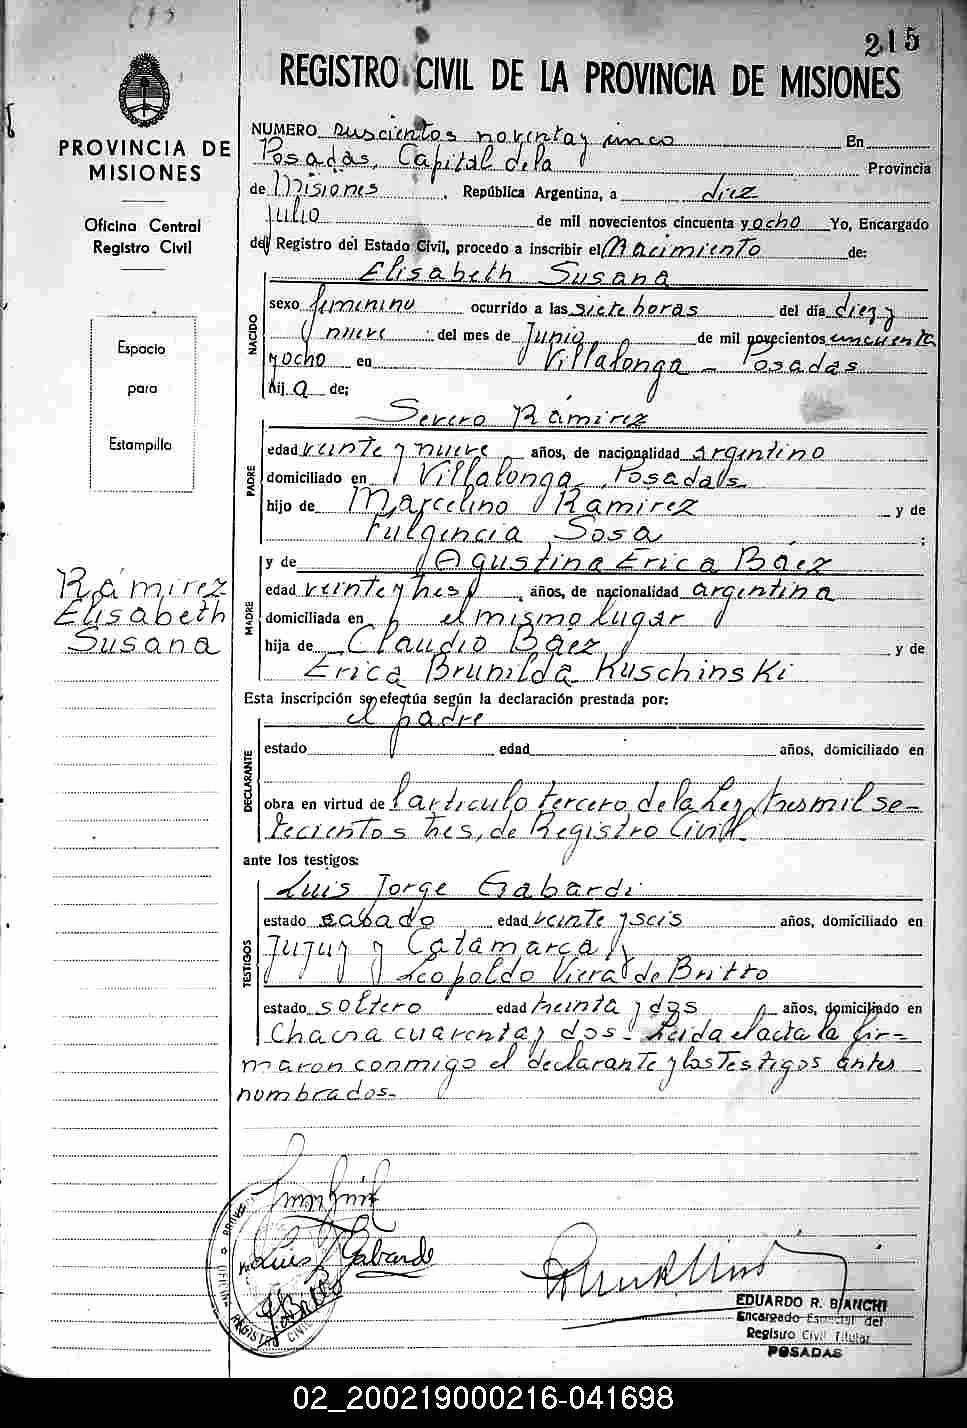 215
REGISTRO CIVIL DE LA PROVINCIA DE MISIONES
PROVINCIA DE
MISIONES
Oficina Central
Registro Civil
Espacio
para
Estampilla
Rámirez
Elisabeth
Susana
NUMERO duscientos noventa y cinco En
Posadas, Capital dela Provincia
de Misiones, República Argentina, a diez
Julio de mil novecientos cincuenta y ocho Yo, Encargado
del Registro del Estado Civil, procedo a inscribir el Nacimiento de:
Elisabeth Susana
NACIDO
sexo femenino ocurrido a las siete horas del día diez y
nueve del mes de Junio de mil novecientos cincuenta
yocho en Villalonga - Posadas
hija de;
Severo Rámirez
PADRE
edad veinte y nueve años, de nacionalidad argentino
domiciliado en Villalonga, Posadas
hijo de Marcelino Ramirez y de
Fulgencia Sosa;
y de Agustina Erica Báez
MADRE
edad veinte y tres, años, de nacionalidad argentina
domiciliada en el mismo lugar
hija de Claudio Báez y de
Erica Brunilda Kuschinski
Esta inscripción se efectúa según la declaración prestada por:
el padre
DECLARANTE
estado edad años, domiciliado en
obra en virtud de l articulo tercero de la Ley tres mil se-
tecientos tres, de Registro Civil
ante los testigos:
Luis Jorge Gabardi
TESTIGOS
estado casado edad veinte y seis años, domiciliado en
Jujuy y Catamarca y
Leopoldo Viera de Britto
estado soltero edad treinta y dos años, domiciliado en
Chacra cuarenta y dos - Leida el acta la fir-
maron conmigo el declarante y los testigos antes
nombrados-
Luis J Gabardi
EDUARDO R. BIANCHI
Encargado Especial del
Registro Civil Titular
POSADAS
02_200219000216-041698